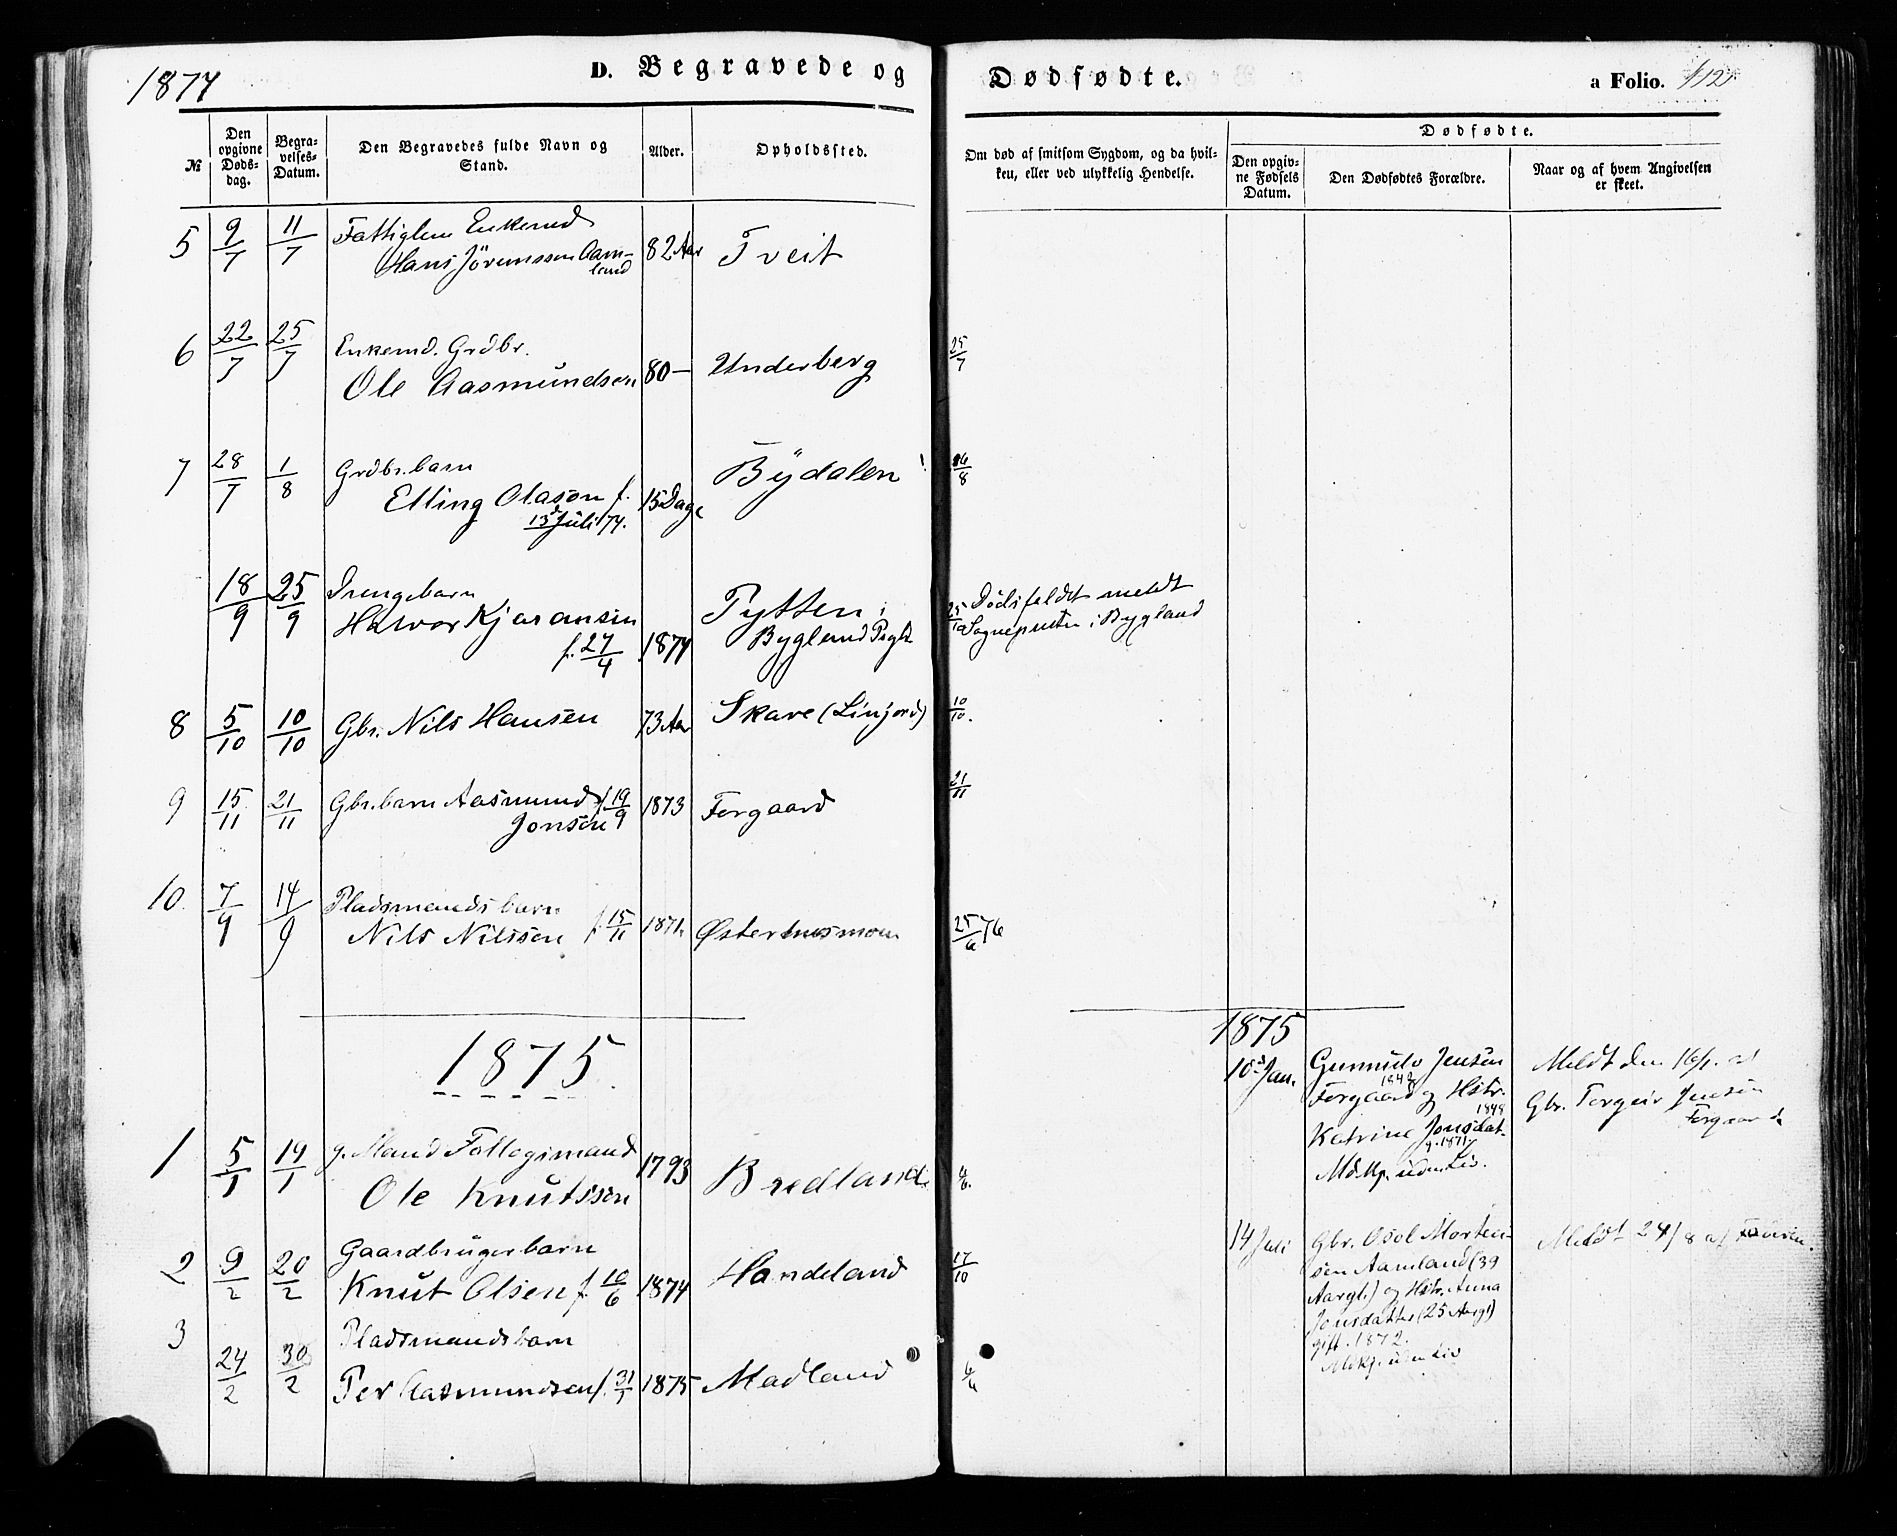 1874
D. Begravede og
Dødfødte.
a Folio. 112
№
Den opgivne Døds-dag.
Begra-velses-Datum.
Den Begravedes fulde Navn og Stand.
Alder.
Opholdssted.
Om død af smitsom Sygdom, og da hvil-ken, eller ved ulykkelig Hendelse.
Dødfødte.
Den opgiv-ne Fødsels Datum.
Den Dødfødtes Forældre.
Naar og af hvem Angivelsen er skeet.
5 9/7 11/7 Fattiglem Enkemd
Hans Jörunssen Aam-land 82 Aar Tveit
6 22/7 25/7 Enkemd. Grdbr.
Ole Aasmundsen 80 — Underberg 25/7
7 28/7 1/8 Grdbr. barn
Elling Olason f. 13d Juli 74. 15 Dage Bÿdalen 16/8
18/9 25/9 Drengebarn
Halvor Kjøransen
f. 27/4 1874 Tytten i
Bygland Prgld 25/10 Dödsfaldet meldt
Sognepresten i Bygland
8 5/10 10/10 Gbr. Nils Hansen 73 Aar Skare (Linjord) 10/10.
9 15/11 21/11 Gbr. barn Aasmund f. 19/9 1873 Forgaard 21/11
Jonsen
10. 7/9 14/9 Pladsmands barn
Nils Nilssen f. 15/11 1871. Østerhusmoen 25/6 76
1875.
1 5/1 19/1 g. Mand Follagsmand
Ole Knutssen 1793 Bredland
2 9/2 20/2 Gaardbrugerbarn
Knut Olsen f. 10/6 1874 Handeland 17/10
3 24/2 30/2 Pladsmandsbarn
Per Aasmundsen f. 31/1 1875 Madland
1875
10d Jan. Gunnulv Jensen
1848
Forgaard og Hstr.
1848
Katrine Jonsdat-
g. 1871.
Md.kj. uden Liv.
Meldt den 16/1. af
Gbr. Torgeir Jensen
Forgaard
14 Juli Gbr. Osol Morten-
sen Aamland (39
Aargl.) og Hstr. Anna
Jonsdatter (25 Aargl)
gift. 1872.
Mdkj. uden Liv
Meldt 24/8 af Faderen.